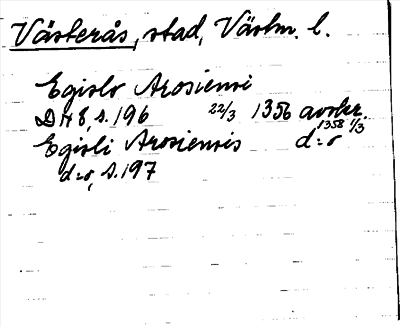 Västerås, stad, Västm. l.
Egislo Arosiensi
DN 8, s. 196 22/3 1356 avskr.
Egisli Arosiensis d:o 1358 1/3
d:o, s. 197